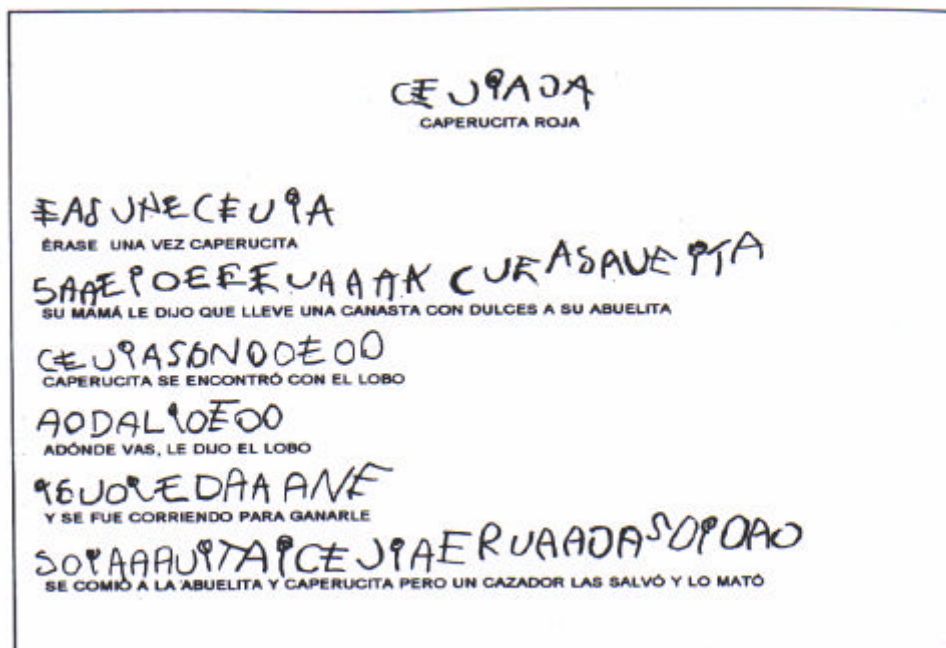 CEUIAJA
CAPERUCITA ROJA
EASUNECEUIA
ÉRASE UNA VEZ CAPERUCITA
SAAEIOEEEUAAAK CUEASAUEITA
SU MAMÁ LE DIJO QUE LLEVE UNA CANASTA CON DULCES A SU ABUELITA
CEUIASONOOEOO
CAPERUCITA SE ENCONTRÓ CON EL LOBO
AODALIOEOO
ADÓNDE VAS, LE DIJO EL LOBO
IEUOIEDAAANE
Y SE FUE CORRIENDO PARA GANARLE
SOIAAAUITAICEJIAERUAAJASOIOAO
SE COMIÓ A LA ABUELITA Y CAPERUCITA PERO UN CAZADOR LAS SALVÓ Y LO MATÓ